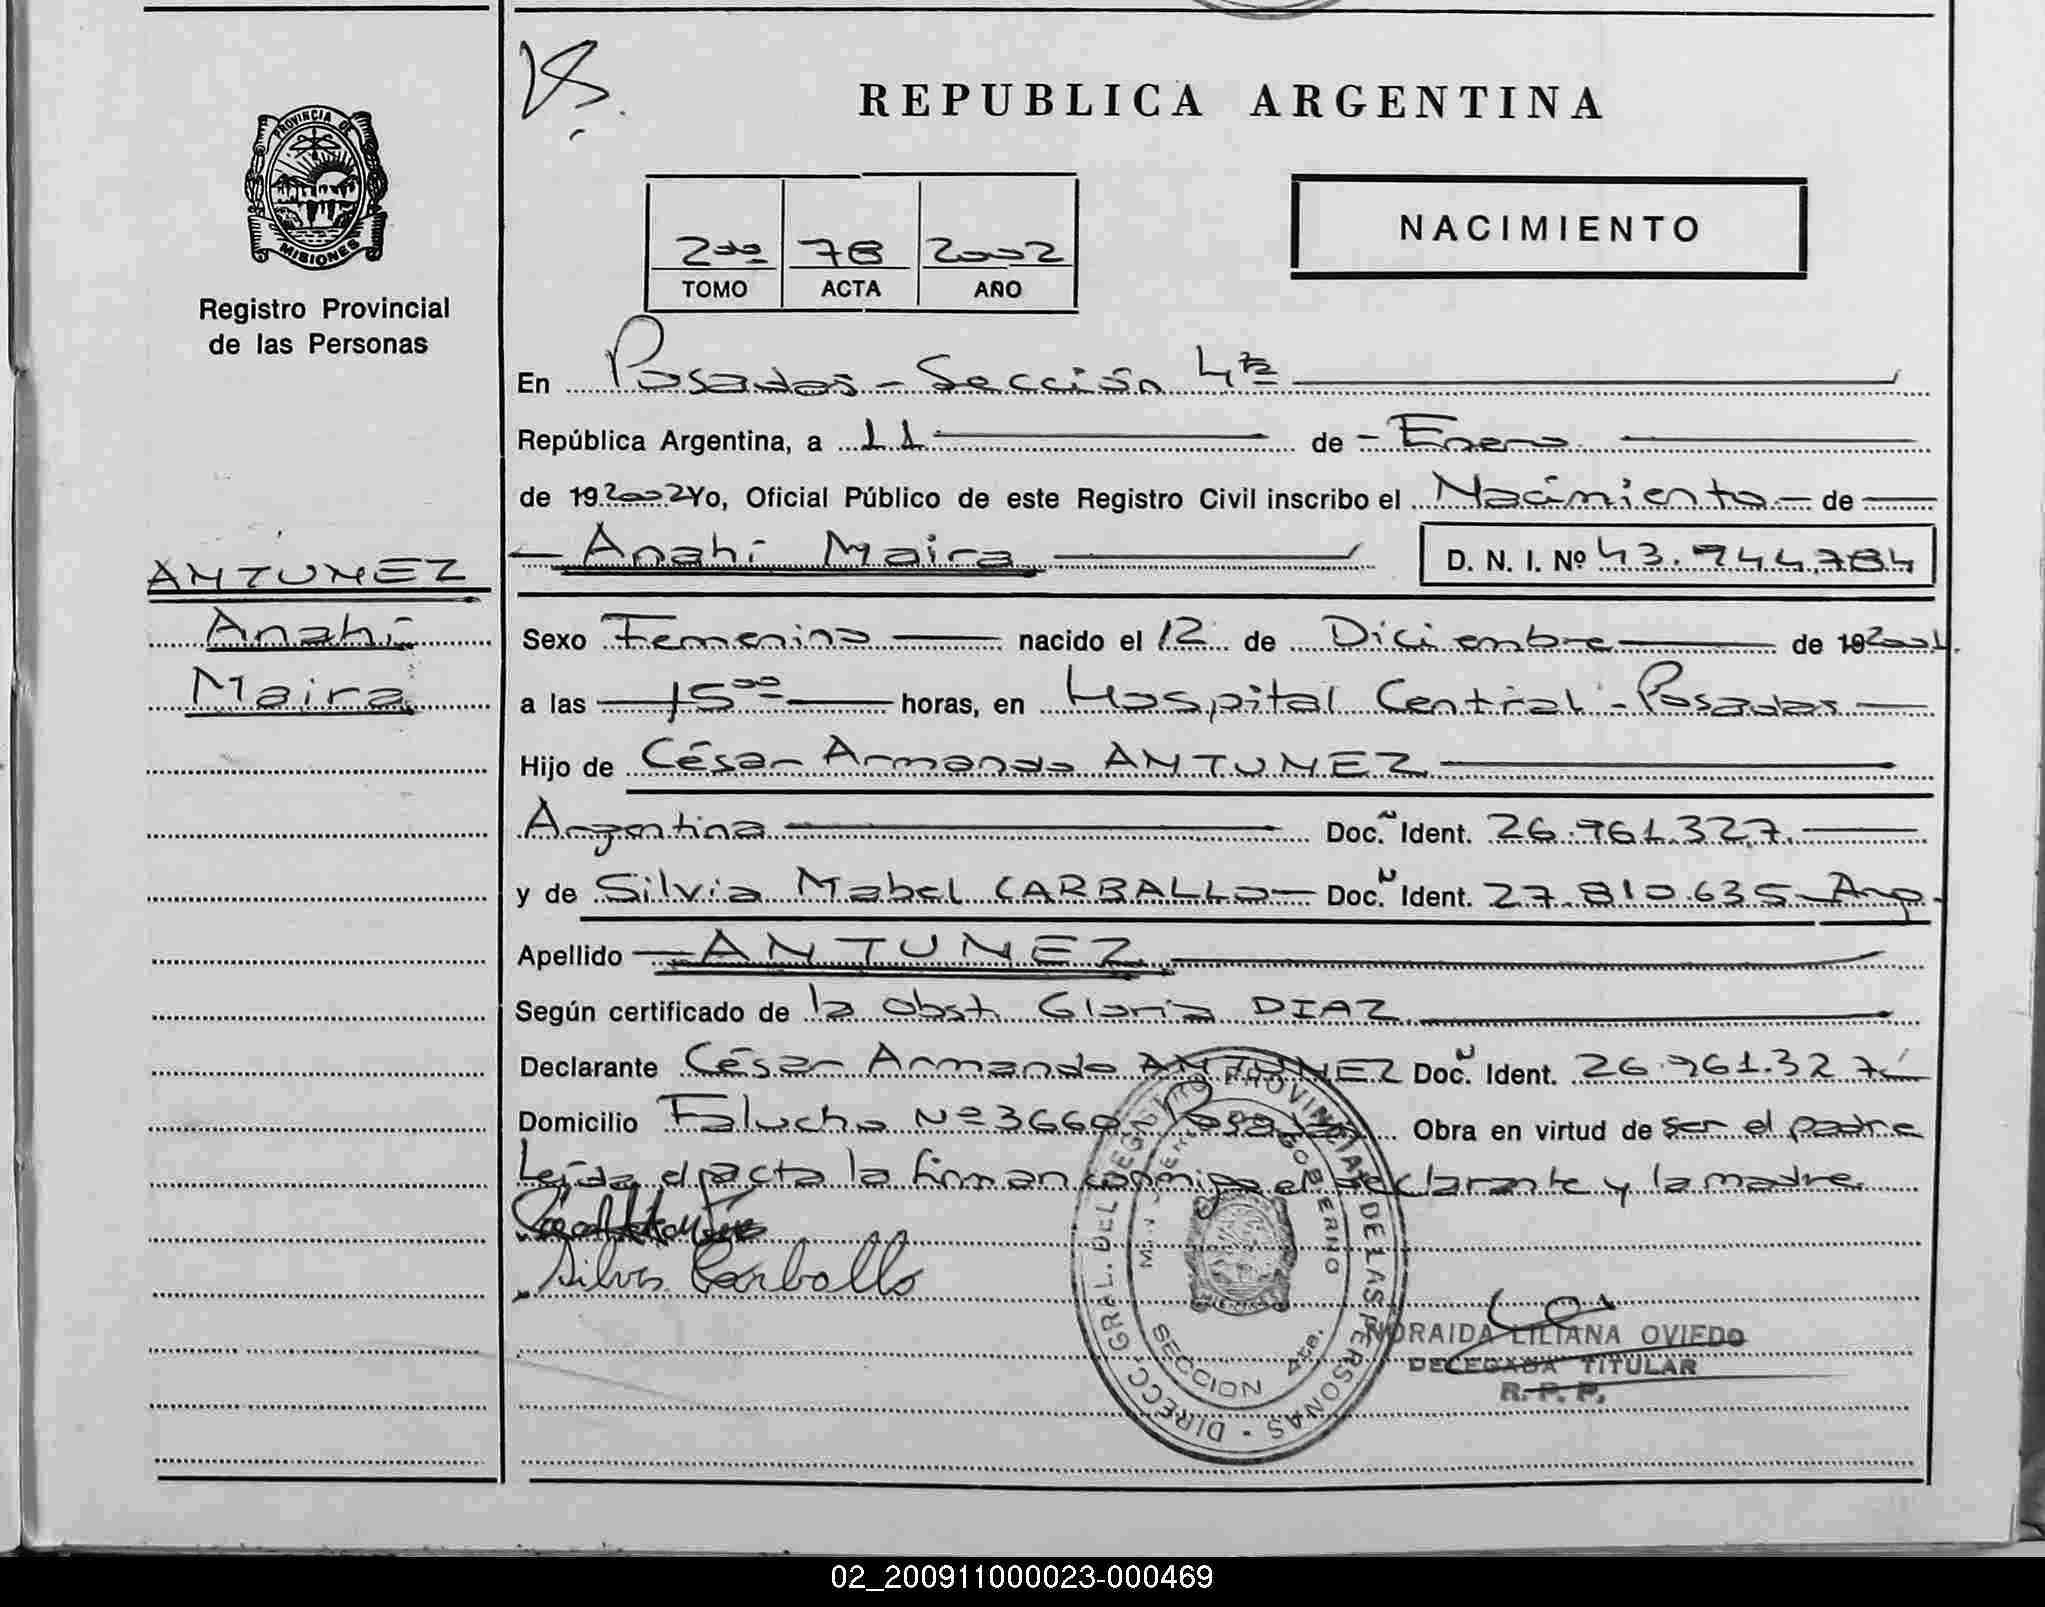 REPUBLICA ARGENTINA
PROVINCIA DE
MISIONES
Registro Provincial
de las Personas
NACIMIENTO
2do 78 2002
TOMO ACTA AÑO
En Posadas - Sección 4ta
República Argentina, a 11 de Enero
de 19 2002 Yo, Oficial Público de este Registro Civil inscribo el Nacimiento de
Anahí Maira D. N. I. Nº 43.944.784
ANTUNEZ
Anahí
Maira
Sexo Femenino nacido el 12 de Diciembre de 19 2001
a las 15 00 horas, en Hospital Central - Posadas
Hijo de César Armando ANTUNEZ
Argentina Doc. Ident. 26.961.327
y de Silvia Mabel CARBALLO Doc. Ident. 27.810.635 Arg.
Apellido ANTUNEZ
Según certificado de la obst. Gloria DIAZ
Declarante César Armando ANTUNEZ Doc. Ident. 26.961.327
Domicilio Falucho Nº 3660 - Posadas Obra en virtud de ser el padre
Leída el acta la firman conmigo el declarante y la madre.
Silvia Carballo
DIRECC. GRAL. DEL REGISTRO PROVINCIAL DE LAS PERSONAS
GOBIERNO
SECCION 4ta.
NORAIDA LILIANA OVIEDO
DELEGADA TITULAR
R. P. P.
02_200911000023-000469